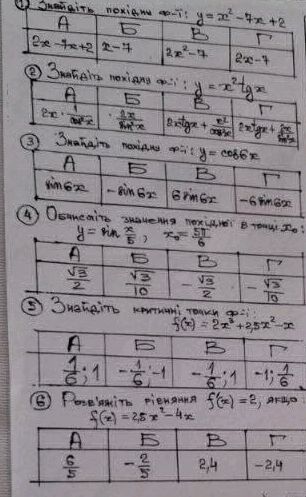 ① Знайдіть похідну ф-ії: y = x² - 7x + 2
А Б В Г
2x - 7x + 2 x - 7 2x² - 7 2x - 7
② Знайдіть похідну ф-ії: y = x² tg x
А Б В Г
2x · 1/cos²x 2x/sin²x 2x tg x + x²/cos²x 2x tg x +
③ Знайдіть похідну ф-ії: y = cos6x
А Б В Г
sin6x - sin6x 6sin6x - 6sin6x
④ Обчисліть значення похідної в точці x₀:
y = sin x/5, x₀ = 5π/6
А Б В Г
√3/2 √3/10 - √3/2 - √3/10
⑤ Знайдіть критичні точки ф-ії:
f(x) = 2x³ + 2,5x² - x
А Б В Г
1/6; 1 - 1/6; -1 - 1/6; 1 -1; 1/6
⑥ Розв'яжіть рівняння f'(x) = 2, якщо
f(x) = 2,5x² - 4x
А Б В Г
6/5 - 2/5 2,4 -2,4